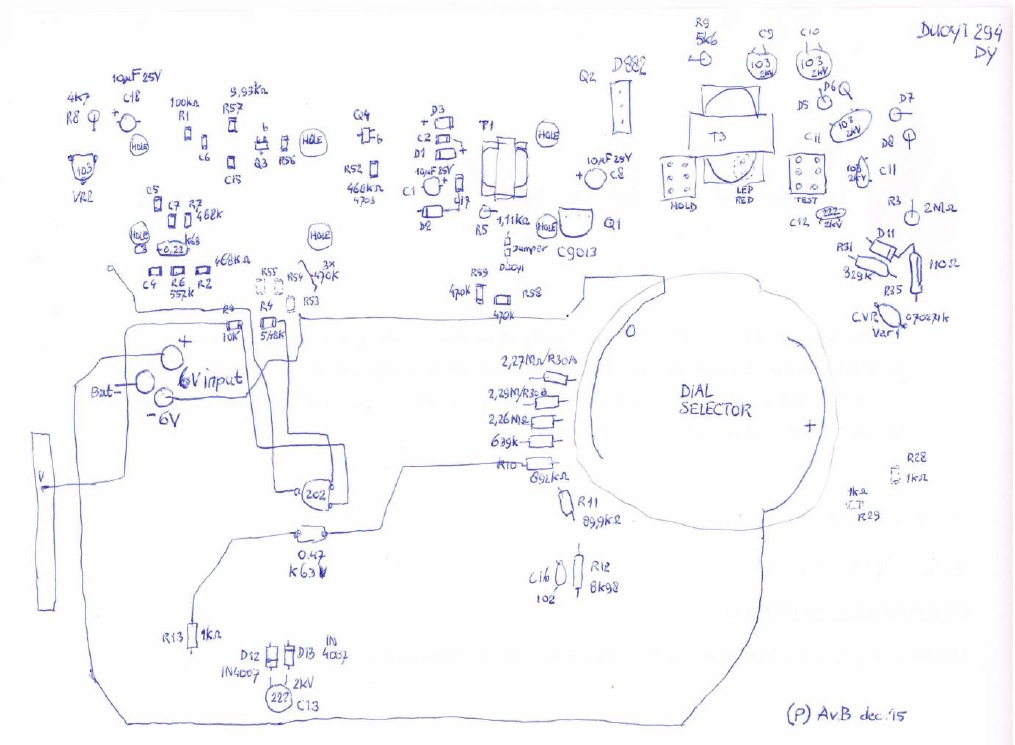 DUOYI 294
DY
R9
5K6
C9
103
2KV
C10
103
2KV
Q2
D882
D5
D6
Q
D7
D8
103
2KV
C11
T3
10µF 25V
C18
4K7
R8
100KΩ
R1
C6
9,93KΩ
R57
C15
b
Q3
R56
HOLE
HOLE
Q4
b
R52
468KΩ
4703
D3
+
C2
D1
10µF 25V
C1
+
D2
C17
T1
HOLE
10µF 25V
C8
+
HOLD
LED
RED
TEST
103
2KV
C11
C12
222
2KV
R3
2MΩ
103
VR2
C5
C7
R7
468K
HOLE
C3
0,22
K63
C4
R6
557K
R2
468KΩ
HOLE
R55
R54
3x
470K
R53
R5
1,11KΩ
HOLE
Q1
C9013
Jumper
DUOYI
R31
329K
D11
110Ω
R35
C.VR
VAR1
R59
470K
R58
470K
R4
10K
R4
5,48K
+
6V input
Bat-
-6V
2,27MΩ/R30A
2,29M/R30B
2,26MΩ
639K
R10
892KΩ
O
DIAL
SELECTOR
+
V
202
R11
89,9KΩ
R28
1KΩ
1KΩ
R29
0.47
K63V
C16
102
R12
8K98
R13
1KΩ
D12
IN4007
D13
IN
4007
2KV
222
C13
(P) AvB dec. '15